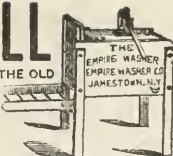 LL
THE OLD
THE
EMPIRE WASHER
EMPIRE WASHER CO
JAMESTOWN.N.Y